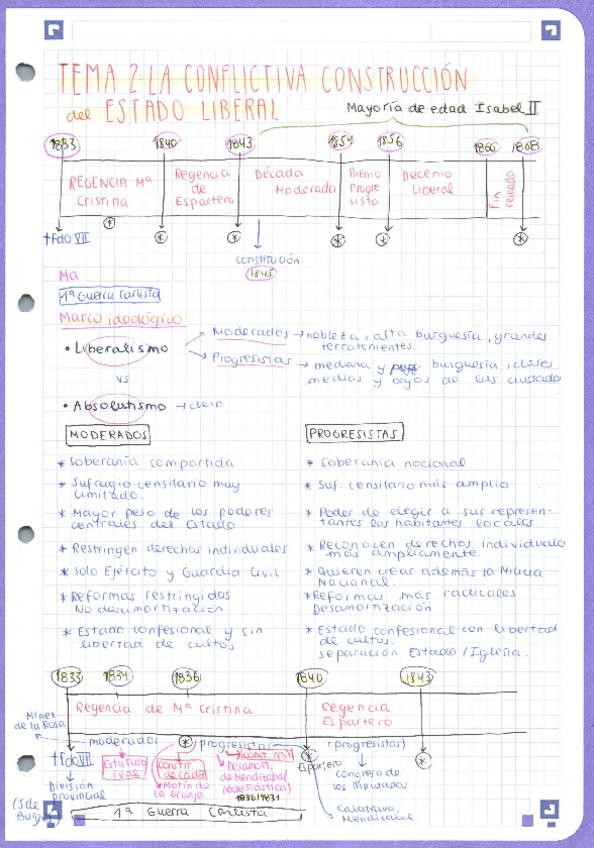 TEMA 2. LA CONFLICTIVA CONSTRUCCIÓN
del ESTADO LIBERAL
Mayoría de edad Isabel II
1833 1840 1843 1854 1856 1866 1868
REGENCIA Mª Cristina
Regencia de Espartero
Década Moderada
Bienio Progresista
Decenio Liberal
Fin reinado
† Fdo VII
constitución
1845
Ma
1ª Guerra Carlista
Marco ideológico
• Liberalismo
Moderados → nobleza, alta burguesía, grandes
terratenientes.
Progresistas → mediana y burguesía, clases
medias y bajas de las ciudades
vs
• Absolutismo → clero
MODERADOS
* Soberanía compartida
* Sufragio censitario muy
limitado.
* Mayor peso de los poderes
centrales del Estado
* Restringen derechos individuales
* Solo Ejército y Guardia Civil
* Reformas restringidas
No desamortización
* Estado confesional y sin
libertad de cultos
PROGRESISTAS
* Soberanía nacional
* Suf. censitario más amplio
* Poder de elegir a sus represen-
tantes los habitantes locales
* Reconocen derechos individuales
más ampliamente.
* Quieren crear además la Milicia
Nacional.
* Reformas más radicales
Desamortización
* Estado confesional con libertad
de cultos.
separación Estado / Iglesia.
1833 1834 1836 1840 1843
Regencia de Mª Cristina
Regencia Espartero
de la Rosa
moderados
progresistas
(progresistas)
† Fdo VII
Estatuto real
Constit. de Cádiz
Motín de la Granja
Const. 1837
Desamort. de Mendizábal
Espartero
congreso de
los Diputados
Calatrava,
Mendizábal
División
provincial
1ª Guerra Carlista